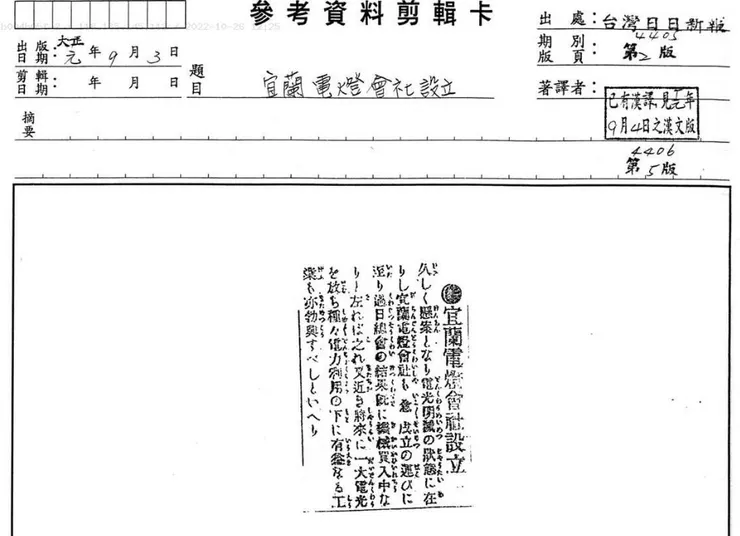 參考資料剪輯卡
出版日期：大正元年9月3日
剪輯日期：年 月 日
題目
宜蘭電燈會社設立
出處：台灣日日新報
4405
期別版頁：第2版
著譯者：
已有漢譯，見元年
9月4日之漢文版
4406
第5版
摘要
宜蘭電燈會社設立
久しく懸案となり電光明滅の狀態に在
りし宜蘭電燈會社も愈成立の運びに
至り過日總會の結果既に機械買入中な
りと左れば之れ又近き將來に一大電光
を放ち種々電力利用の下に有益なる工
業も亦勃興すべしといへり